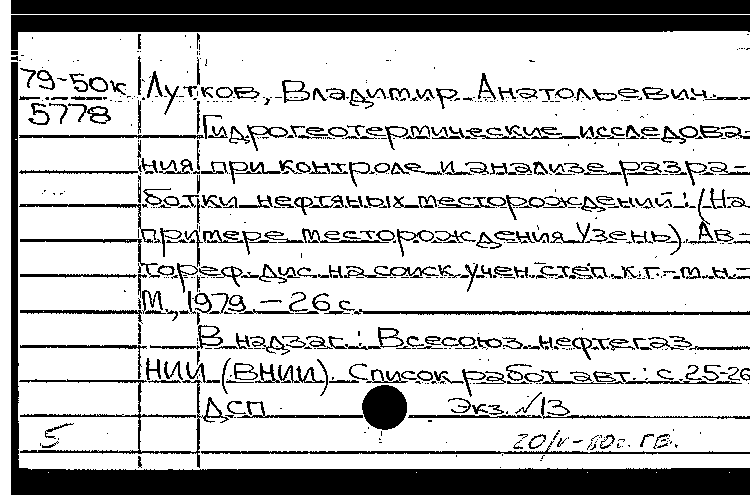 79-50к Лутков, Владимир Анатольевич.
5778
Гидрогеотермические исследова-
ния при контроле и анализе разра-
ботки нефтяных месторождений: (На
примере месторождения Узень). Ав-
тореф. дис. на соиск. учен. степ. к.г.-м.н.-
М., 1979. - 26 с.
В надзаг.: Всесоюз. нефтегаз.
НИИ (ВНИИ). Список работ авт.: с. 25-26
ДСП Экз. №13
5 20/V-80г. ГВ.